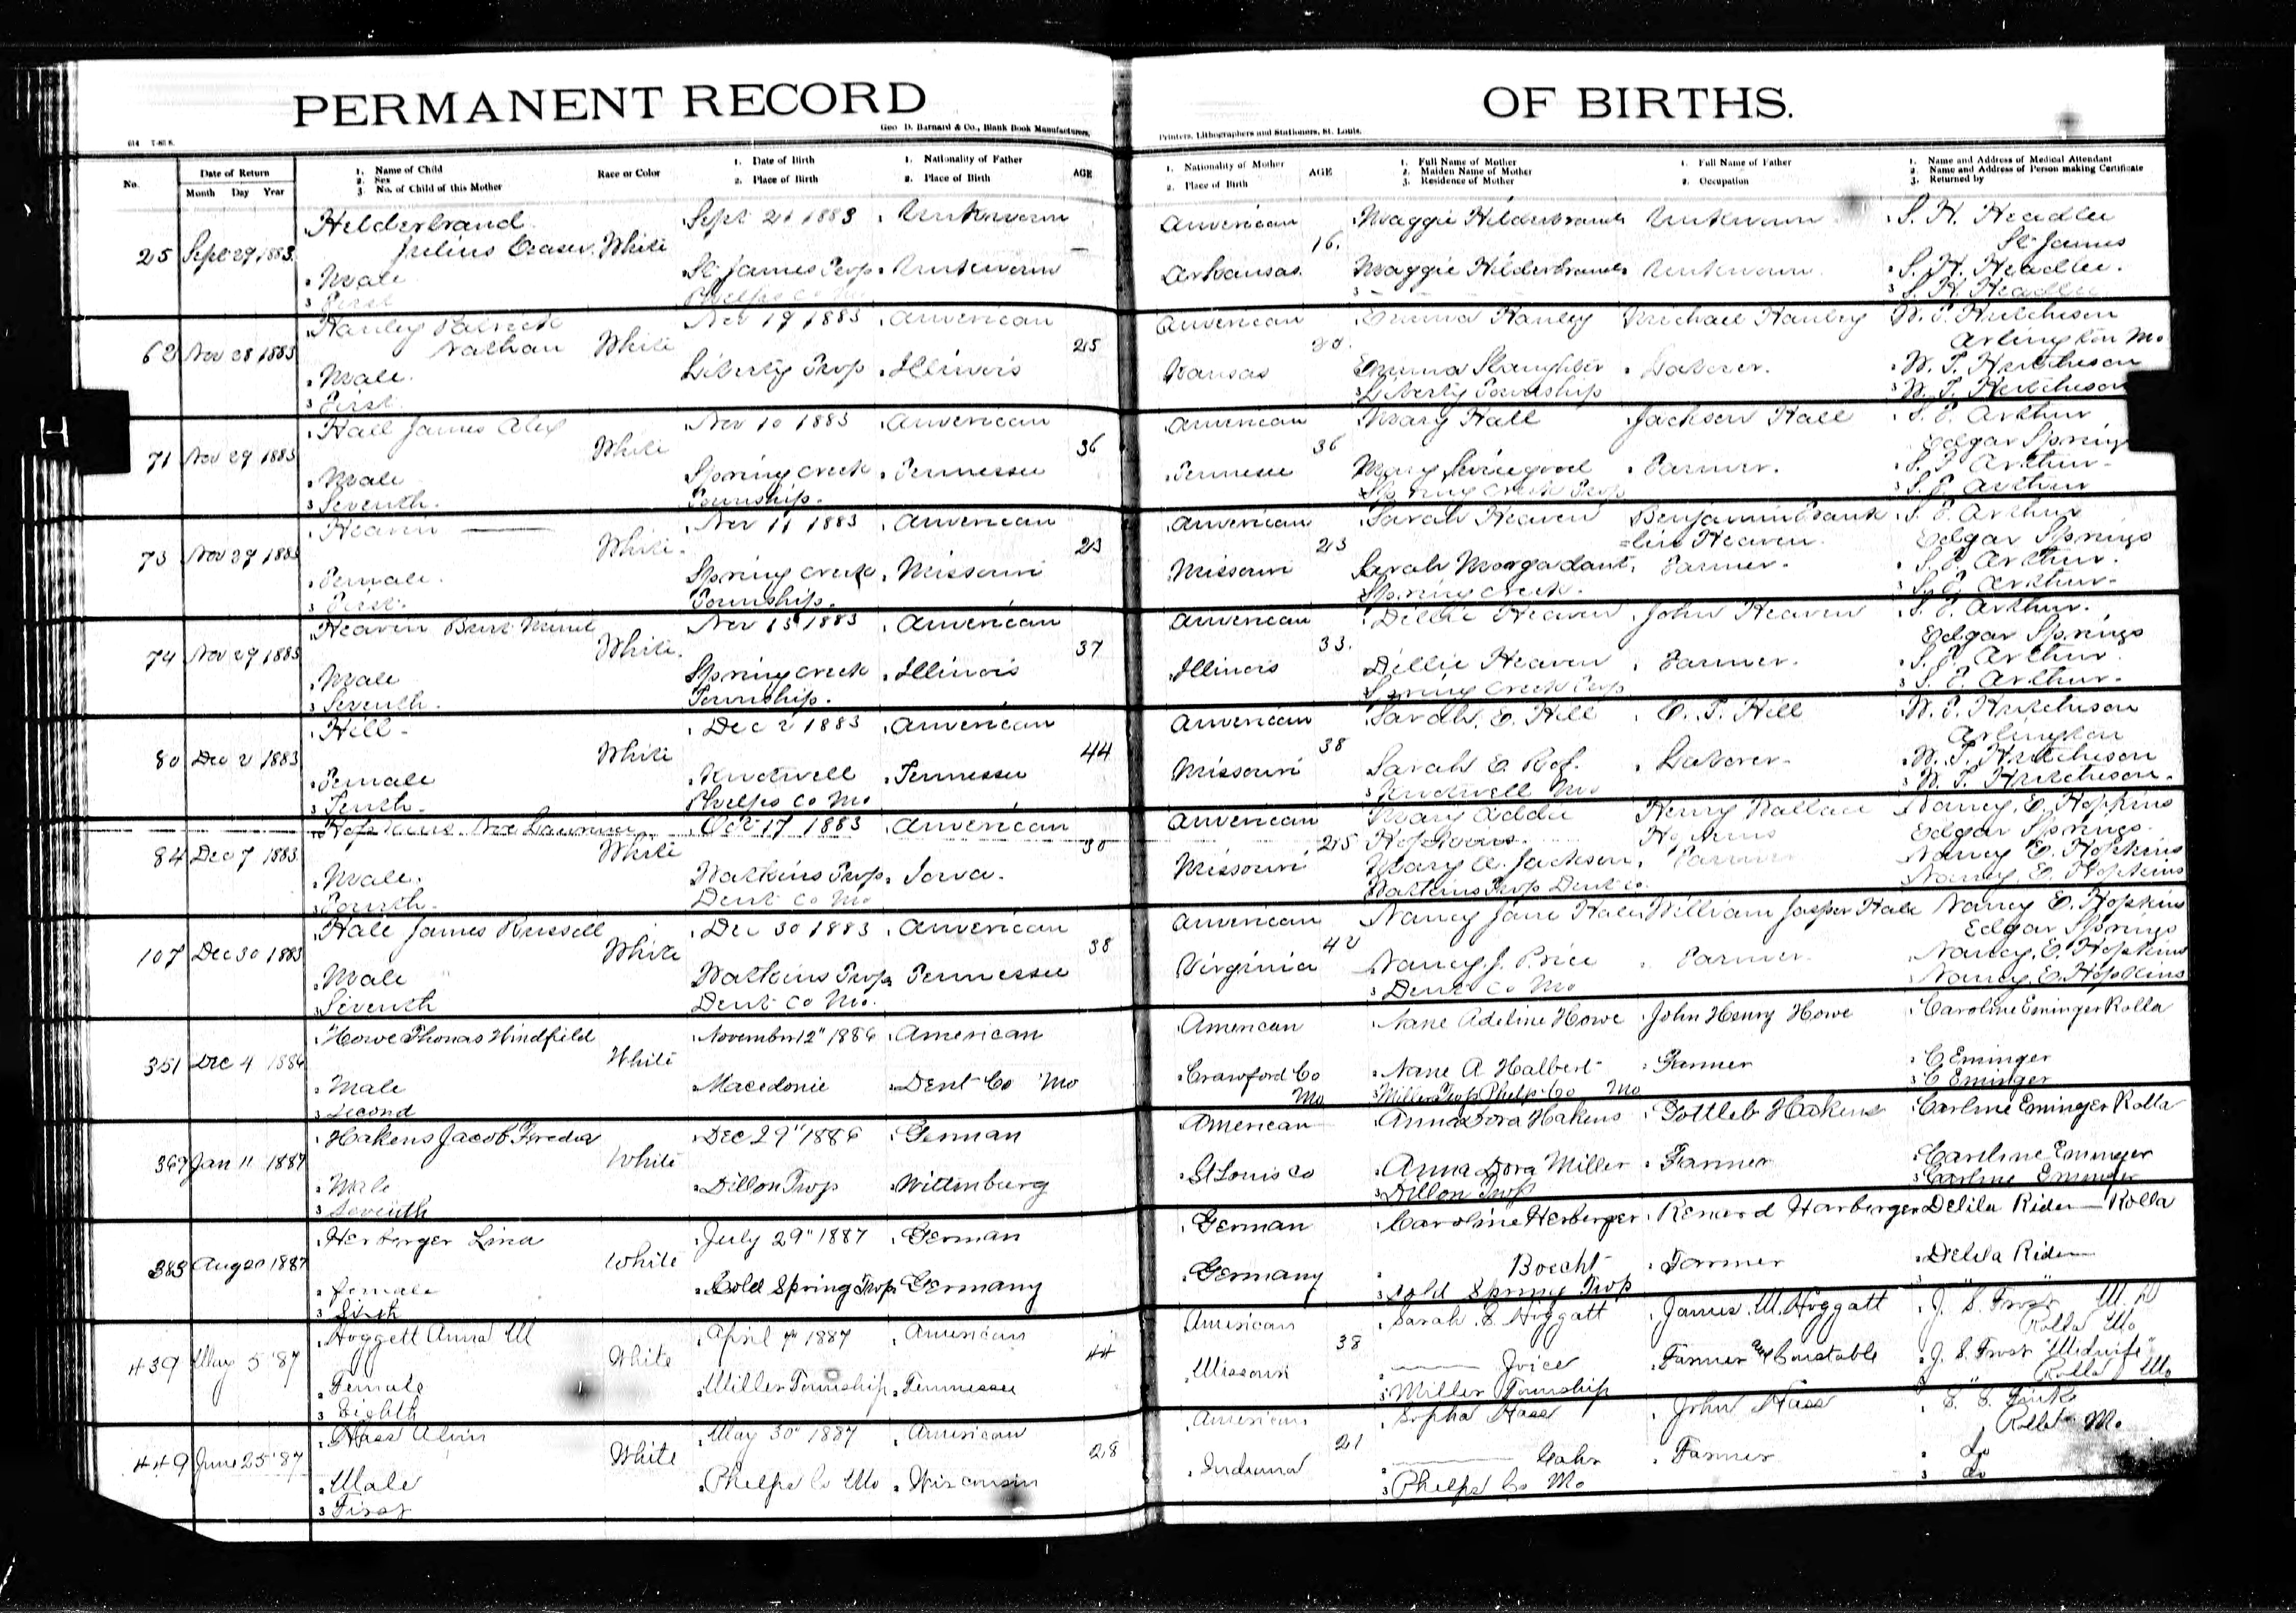 PERMANENT RECORD OF BIRTHS.
614 T-83 S.
Geo D. Barnard & Co., Blank Book Manufacturers,
Printers, Lithographers and Stationers, St. Louis.
No.
Date of Return
Month Day Year
1. Name of Child
2. Sex
3. No. of Child of this Mother
Race or Color
1. Date of Birth
2. Place of Birth
1. Nationality of Father
2. Place of Birth
AGE
1. Nationality of Mother
2. Place of Birth
AGE
1. Full Name of Mother
2. Maiden Name of Mother
3. Residence of Mother
1. Full Name of Father
2. Occupation
1. Name and Address of Medical Attendant
2. Name and Address of Person making Certificate
3. Returned by
H
25 Sept 29 1883
Hilderbrand
Julius Ceaser. White
Male
First
Sept 21 1883
St. James Twp
Phelps Co Mo
Unknown
Unknown —
American
Arkansas
16.
Maggie Hilderbrand
Maggie Hilderbrand
Unknown
Unknown
S. H. Headlee
St James
S. H. Headlee.
S. H. Headlee
62 Nov 28 1883
Hanley Patrick
Nathan White
Male.
First.
Nov 19 1883
Liberty Twp
American
Illinois
25
American
Kansas
Emma Hanley
Emma Slaughter
Liberty Township
Michael Hanley
Laborer.
W. T. Hutcheson
Arlington Mo
W. T. Hutcheson
W. T. Hutcheson
71 Nov 29 1883
Hall James Alex
White
Male
Seventh.
Nov 10 1883
Spring Creek
Township.
American
Tennessee
36
American
Tennessee
36
Mary Hall
Mary
Spring Creek Twp
Jackson Hall
Farmer.
S. T. Arthur
Edgar Springs
S. T. Arthur
S. T. Arthur
73 Nov 29 1883
Heaven —
White.
Female.
First.
Nov 11 1883
Spring Creek
Township.
American
Missouri
23
American
Missouri
23
Sarah Heaven
Sarah Morgadant
Spring Creek.
Benjamin Frank
=lin Heaven.
Farmer.
S. T. Arthur
Edgar Springs
S. T. Arthur.
S. T. Arthur.
74 Nov 29 1883
Heaven
White.
Male
Seventh.
Nov 15 1883
Spring Creek
Township.
American
Illinois
37
American
Illinois
33.
Dillie Heaven
Dillie Heaven
Spring Creek Twp
John Heaven
Farmer.
S. T. Arthur.
Edgar Springs
S. T. Arthur.
S. T. Arthur.
80 Dec 2 1883
Hill -
White
Female
Tenth.
Dec 2 1883
Knotwell
Phelps Co Mo
American
Tennessee
44
American
Missouri
38
Sarah. E. Hill
Sarah E.
Knotwell Mo
E. T. Hill
Laborer.
W. T. Hutcheson
Arlington
W. T. Hutcheson
W. T. Hutcheson.
84 Dec 7 1883
Hopkins
White
Male.
Fourth.
Oct 17 1883
Watkins Twp
Dent Co Mo
American
Iowa.
30
American
Missouri
25
Mary Addie
Hopkins.
Mary A. Jackson
Watkins Twp Dent Co.
Henry Wallace
Hopkins
Farmer
Nancy. E. Hopkins
Edgar Springs.
Nancy E. Hopkins
Nancy. E. Hopkins
107 Dec 30 1883
Hale James Russell
White
Male
Seventh
Dec 30 1883
Watkins Twp
Dent Co Mo.
American
Tennessee
38
American
Virginia
42
Nancy Jane Hale
Nancy. J. Price
Dent Co Mo
William Jasper Hale
Farmer.
Nancy E. Hopkins
Edgar Springs
Nancy. E. Hopkins
Nancy. E. Hopkins
351 Dec 4 1886
Howe Thomas Windfield
White
Male
Second
November 12" 1886
Macedonie
American
Dent Co Mo
American
Crawford Co
Mo
Nane Adeline Howe
Nane A Halbert
Miller Twp Phelps Co Mo
John Henry Howe
Farmer
Caroline Eminger Rolla
C Eminger
C Eminger
367 Jan 11 1887
Hakens Jacob
White
Male
Seventh
Dec 29" 1886
Dillon Twp
German
Wittenburg
American
St Louis Co
Anna Dora Hakens
Anna Dora Miller
Dillon Twp
Gottleb Hakens
Farmer
Carline Eminger Rolla
Carline Eminger
Carline Eminger
383 Aug 20 1887
Herberger Lina
White
female
Sixth
July 29" 1887
Cold Spring Twp
German
Germany
German
Germany
Caroline Herberger
Boecht
Cold Spring Twp
Harberger
Farmer
Delila Rider — Rolla
Delila Rider
" "
439 May 5 '87
Hoggett Anna M
White
Female
Eighth
April 7th 1887
Miller Township
American
Tennessee
44
American
Missouri
38
Sarah. E. Hoggatt
— Joice
Miller Township
James. M. Hoggatt
Farmer and Constable
J. S. Frost M. D
Rolla Mo
J. S. Frost "Midwife"
Rolla Mo
449 June 25 '87
Hass Alvin
White
Male
First
May 30" 1887
Phelps Co Mo
American
Wisconsin
28
American
Indiana
21
Sopha Hass
— Gahr
Phelps Co Mo
John Hass
Farmer
Rolla Mo.
do
do